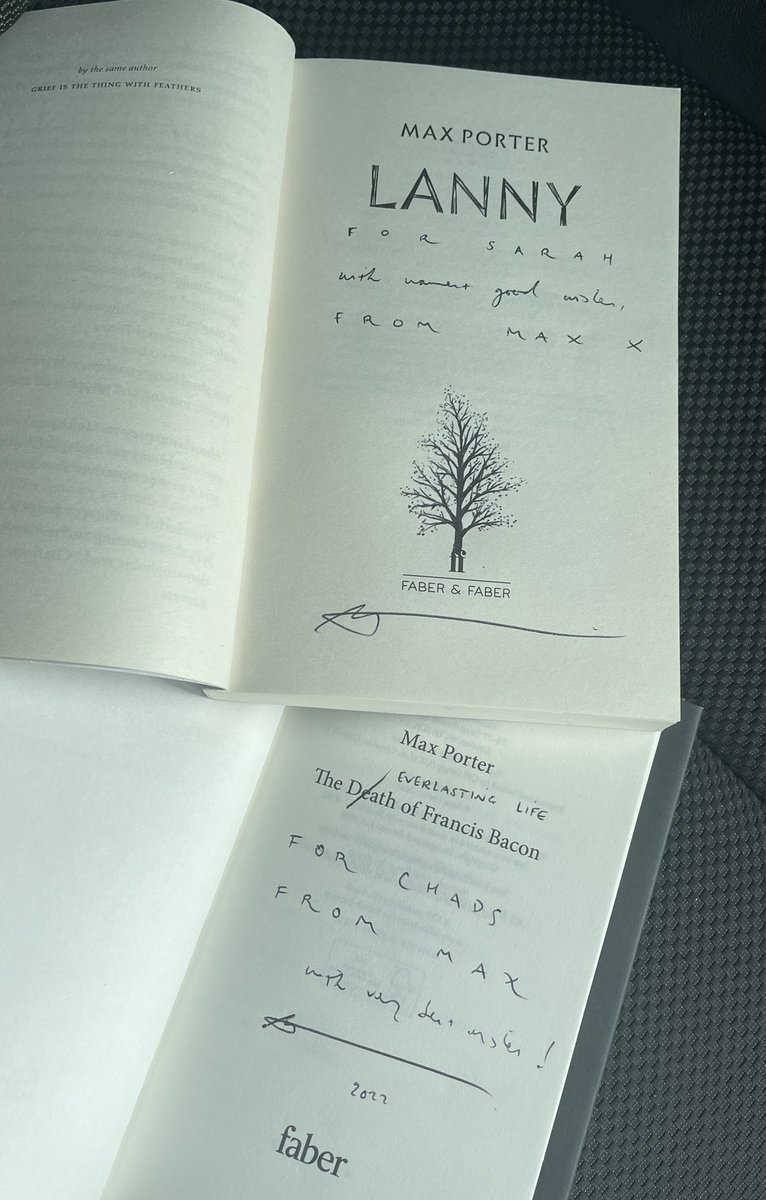 by the same author
GRIEF IS THE THING WITH FEATHERS
MAX PORTER
LANNY
FOR SARAH
with warmest good wishes,
FROM MAX X
ff
FABER & FABER
Max Porter
EVERLASTING LIFE
The Death of Francis Bacon
FOR CHADS
FROM MAX
with very best wishes!
2022
faber